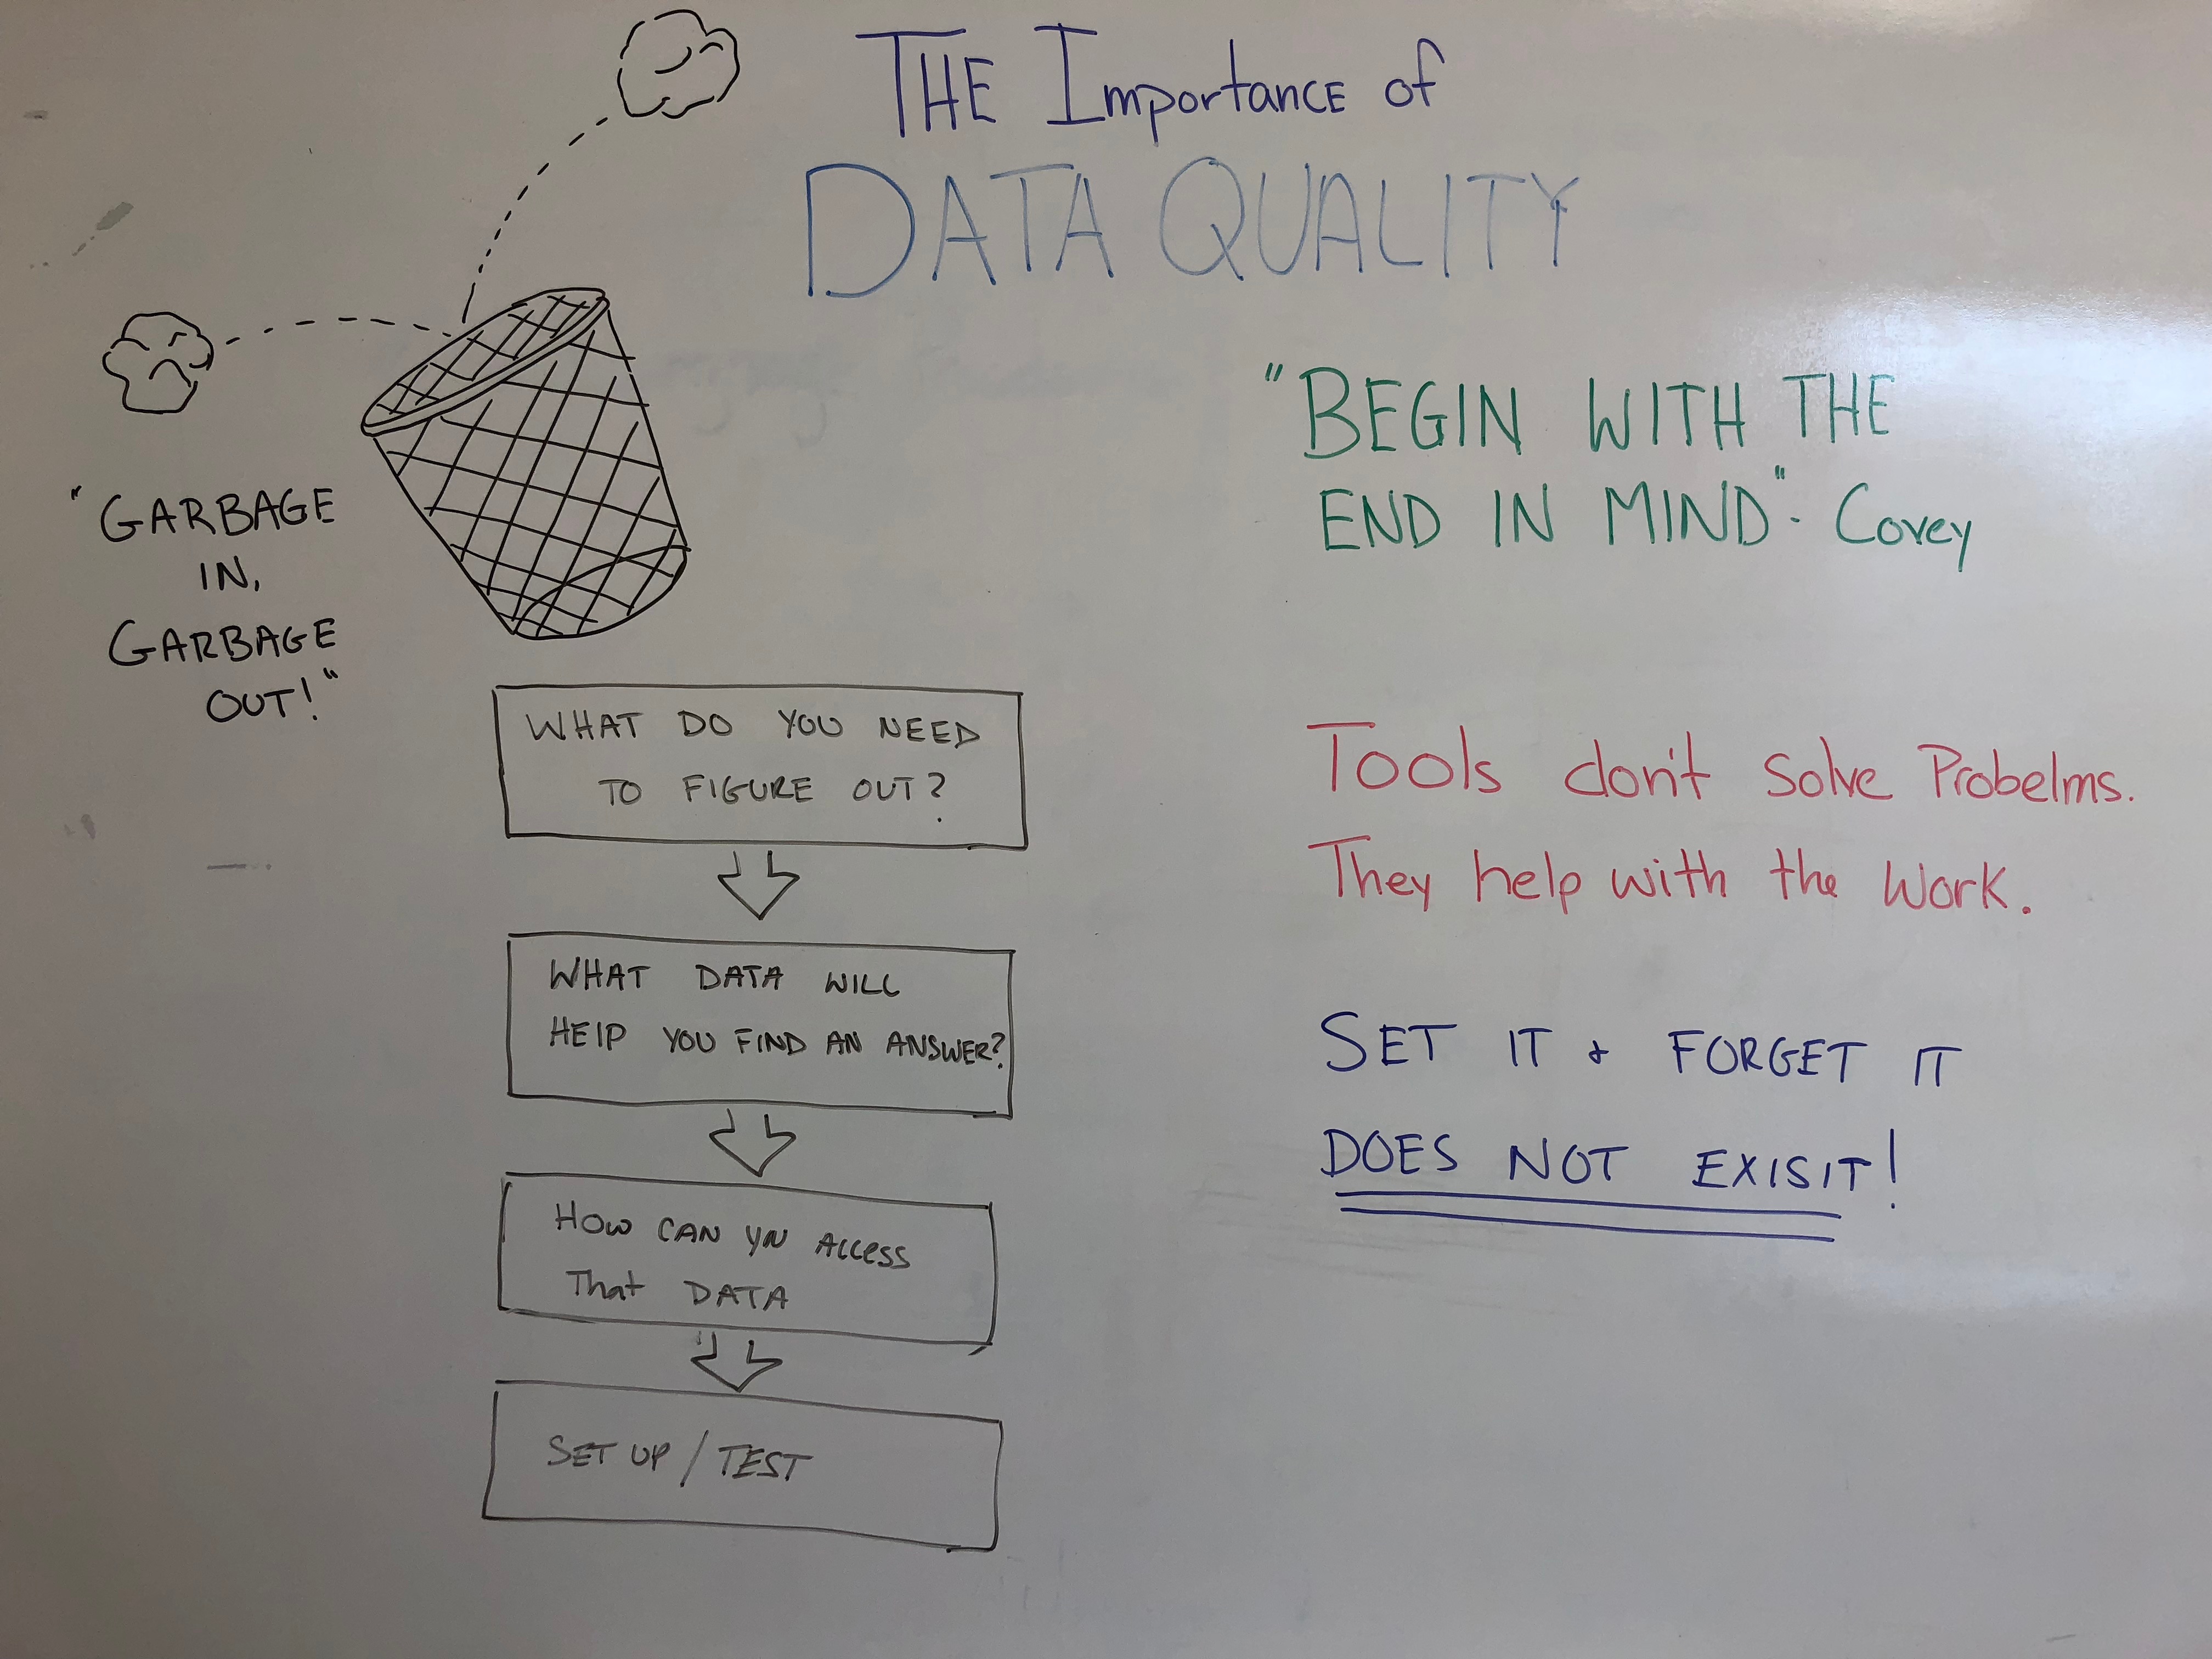 THE Importance of
DATA QUALITY
"GARBAGE
IN,
GARBAGE
OUT!"
"BEGIN WITH THE
END IN MIND"- Covey
WHAT DO YOU NEED
TO FIGURE OUT?
WHAT DATA WILL
HELP YOU FIND AN ANSWER?
HOW CAN YOU ACCESS
That DATA
SET UP / TEST
Tools don't solve Probelms.
They help with the Work.
SET IT & FORGET IT
DOES NOT EXISIT!